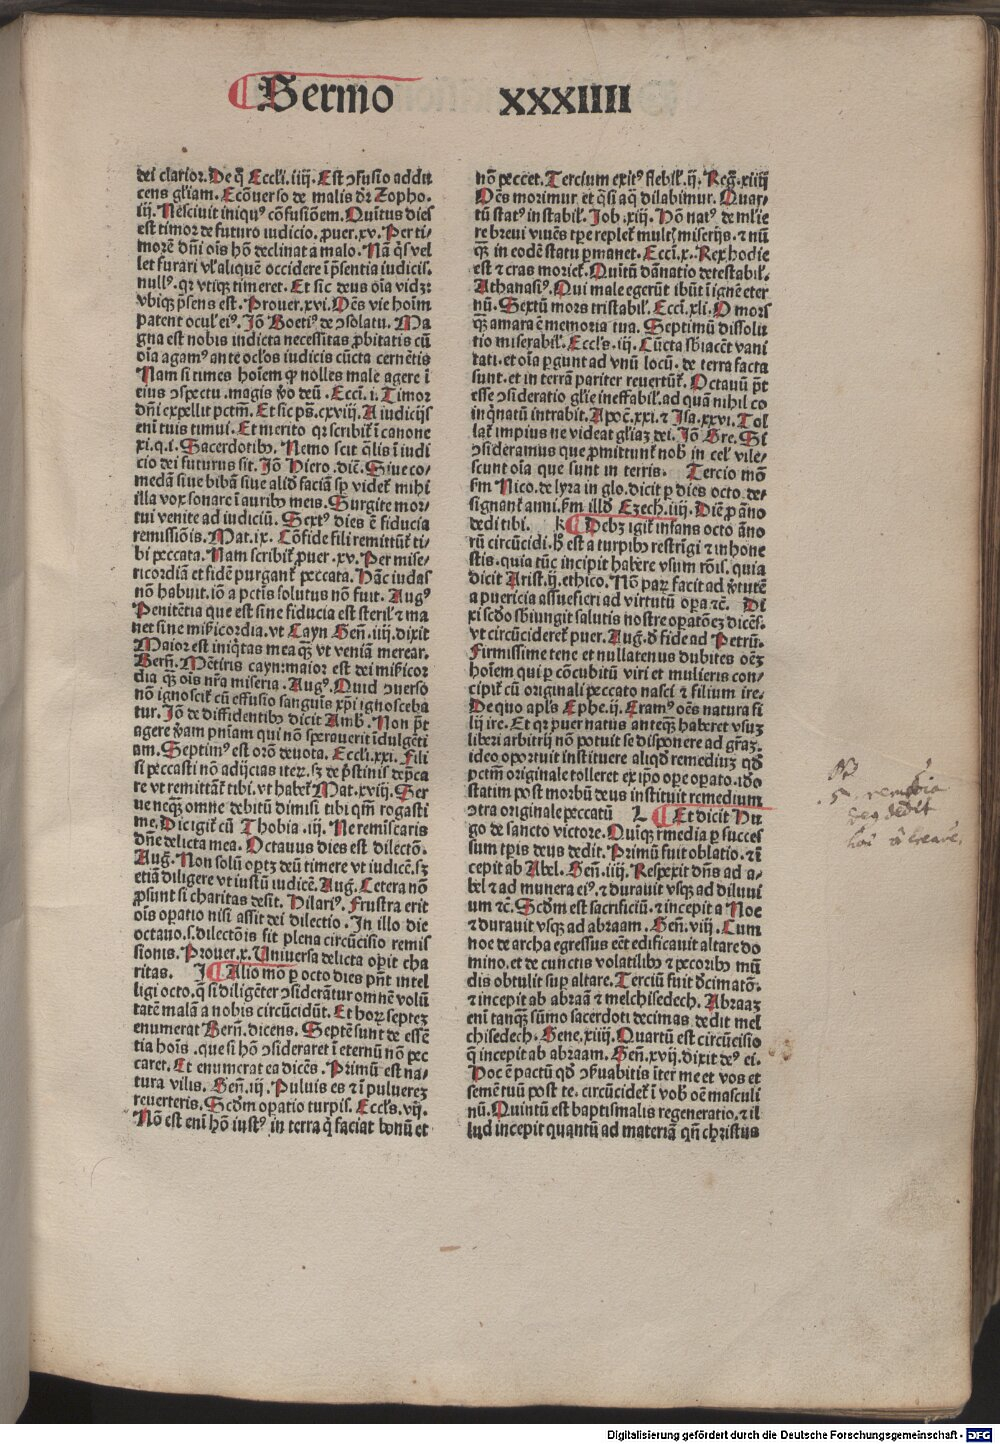 Sermo XXXIIII
dei clarior. De q̃ Eccľi. iiij. Est ɔfusio addu
cens gľiam. Ecõuerso de malis dr̃ Zopho.
iij. Nesciuit iniquꝰ cõfusiõem. Quĩtus dies
est timor de futuro iudicio. ꝓuer. xv. Per ti⸗
morẽ dñi oĩs hõ declinat a malo. Nã q̃s vel
let furari vľ aliquẽ occidere ĩ p̃sentia iudicis.
nullꝰ. qr vtiqȝ timeret. Et sic deus oĩa videt
vbiqȝ p̃sens est. Prouer. xvi. Oẽs vie hoĩm
patent oculꝭ eiꝰ. Jõ Boetiꝰ de ɔsolatu. Ma
gna est nobis indicta necessitas ꝓbitatis cũ
oĩa agamꝰ ante ocľos iudicis cũcta cernẽtis
Nam si times hoĩem qꝫ nolles male agere ĩ
eius ɔspectu. magis ṽo deũ. Eccľi. i. Timor
dñi expellit pctm̃. Et sic ps̃. cxviii. A iudicijs
eni tuis timui. Et merito qr scribit᷑ ĩ canone
xi. q. i. Sacerdotibꝰ. Nemo scit q̃lis ĩ iudi
cio dei futurus sit. Jõ Hiero. dic̃. Siue co⸗
medã siue bibã siue aliđ faciã sꝑ videt᷑ mihi
illa vox sonare ĩ auribꝰ meis. Surgite mor⸗
tui venite ad iudiciũ. Sextꝰ dies ẽ fiducia
remissiõis. Mat. ix. Cõfide fili remittũt᷑ ti⸗
bi peccata. Nam scribit᷑ ꝓuer. xv. Per mise⸗
ricordiã et fidẽ purgant᷑ peccata. Hãc iudas
nõ habuit. iõ a pctĩs solutus nõ fuit. Augꝰ
Penitẽtia que est sine fiducia est sterilꝭ ⁊ ma
net sine miẜicordia. vt Cayn Geñ. iiij. dixit
Maior est iniq̃tas mea qȝ̃ vt veniã merear.
Berñ. Mẽtiris cayn: maior est dei miẜicor
dia qȝ̃ oĩs nr̃a miseria. Augꝰ. Quid ɔuerso
nõ ignoscit᷑ cũ effusio sanguis xp̃i ignosceba
tur. Jõ de diffidentibꝰ dicit Amb̃. Non p̃t
agere ṽam pñiam qui nõ sperauerit ĩdulgẽti
am. Septimꝰ est orõ deuota. Eccľi. xxi. Fili
si peccasti nõ adijcias iteꝝ. sȝ de p̃stinis dep̃ca
re vt remittãt᷑ tibi. vt habet᷑ Mat. xviij. Ser
ue neqȝ̃ omne debitũ dimisi tibi qm̃ rogasti
me. Dic igit᷑ cũ Thobia. iij. Ne remĩscaris
dñe delicta mea. Octauus dies est dilectõ.
Aug̃. Non solũ oꝑtȝ deũ timere vt iudicẽ. sȝ
etiã diligere vt iustũ iudicẽ. Aug̃. Cetera nõ
ꝓsunt si charitas desit. Hilariꝰ. Frustra erit
oĩs oꝑatio nisi assit dei dilectio. In illo die
octauo. s. dilectõis fit plena circũcisio remis
sionis. Prouer. x. Uniuersa delicta oꝑit cha
ritas. J Alio mõ ꝑ octo dies pñt intel
ligi octo. q̃ si diligẽter ɔsiderãtur omnẽ volũ
tatẽ malã a nobis circũcidũt. Et hoꝝ septeȝ
enumerat Berñ. dicens. Septẽ sunt de essẽ
tia hoĩs. que si hõ ɔsideraret ĩ eternũ nõ pec
caret. Et enumerat ea dicẽs. Primũ est na⸗
tura vilis. Geñ. iij. Puluis es ⁊ ĩ puluereȝ
reuerteris. Scđm oꝑatio turpis. Eccľs. vij.
Nõ est eni hõ iustꝰ in terra q̃ faciat bonũ et
nõ peccet. Tercium exitꝰ flebilꝭ. ij. Reg̃. xiiij
Oẽs morimur. et q̃si aq̃ dilabimur. Quar⸗
tũ statꝰ instabilꝭ. Job. xiij. Hõ natꝰ de mľie
re breui viuẽs tꝑe replet᷑ multꝭ miserijs. ⁊ nũ
qȝ̃ in eodẽ statu ꝑmanet. Eccľi. x. Rex hodie
est ⁊ cras moriet᷑. Quĩtũ dãnatio detestabilꝭ.
Athanasiꝰ. Qui male egerũt ibũt ĩ ignẽ eter
nũ. Sextũ mors tristabilꝭ. Eccľi. xli. O mors
qȝ̃ amara ẽ memoria tua. Septimũ dissolu
tio miserabilꝭ. Eccľs. iij. Cũcta sbiacẽt vani
tati. et oĩa ꝑgunt ad vnũ locũ. de terra facta
sunt. et in terrã pariter reuertũt᷑. Octauũ p̃t
esse ɔsideratio gľie ineffabilꝭ. ad quã nihil co
inq̃natũ intrabit. Apoc̃. xxi. ⁊ Isa. xxvi. Tol
lat᷑ impius ne videat gľiaȝ dei. Jõ Gre. Si
ɔsideramus que ꝓmittunt᷑ nob̃ in celꝭ vile⸗
scunt oĩa que sunt in terris. Tercio mõ
ẜm Nico. de lyra in glo. dicit ꝙ dies octo de⸗
signant᷑ anni. ẜm illđ Ezech. iiij. Diẽ ꝓ ãno
dedi tibi. K Debȝ igit᷑ infans octo ãno
rũ circũcidi. h̃ est a turpibꝰ restrĩgi ⁊ inhone
stis. quia tũc incipit habere vsum rõis. quia
dicit Arist. ij. ethico. Nõ paꝝ facit ad ṽtutẽ
a puericia assuefieri ad virtutũ oꝑa ⁊c̃. Di
xi scđo sbiungit salutis nostre oꝑatõeȝ dicẽs.
vt circũcideret᷑ puer. Aug̃. đ fide ad Petrũ.
Firmissime tene et nullatenus dubites oẽȝ
hoĩem qui ꝑ cõcubitũ viri et mulieris con⸗
cipit᷑ cũ originali peccato nasci ⁊ filium ire.
De quo apľs Ephe. ij. Eramꝰ oẽs natura fi
lij ire. Et qr puer natus anteqȝ̃ haberet vsuȝ
liberi arbitrij nõ potuit se disponere ad gr̃aȝ.
ideo oportuit instituere aliqđ remediuȝ qđ
pctm̃ originale tolleret ex ip̃o oꝑe oꝑato. iđo
statim post morbũ deus instituit remedium
ɔtra originale peccatũ L Et dicit Hu
go de sancto victore. Quĩqȝ rmedia ꝑ succes
sum tꝑis deus dedit. Primũ fuit oblatio. ⁊ ĩ
cepit ab Abel. Geñ. iiij. Respexit dñs ad a⸗
bel ⁊ ad munera eiꝰ. ⁊ durauit vsqȝ ad diluui
um ⁊c̃. Scđm est sacrificiũ. ⁊ incepit a Noe
⁊ durauit vsqȝ ad abraam. Geñ. viij. Cum
noe de archa egressus eẽt edificauit altare do
mino. et de cunctis volatilibꝰ ⁊ pecoribꝰ mũ
dis obtulit suꝑ altare. Terciũ fuit đcimatõ.
⁊ incepit ab abraã ⁊ melchisedech. Abraaȝ
eni tanqȝ̃ sũmo sacerdoti decimas dedit mel
chisedech. Gene. xiiij. Quartũ est circũcisio
q̃ incepit ab abraam. Geñ. xvij. dixit deꝰ ei.
Hoc ẽ pactũ qđ obẜuabitis ĩter me et vos et
semẽ tuũ post te. circũcidet᷑ ĩ vob̃ oẽ masculi
nũ. Quintũ est baptismalis regeneratio. ⁊ il
lud incepit quantũ ad materiã qñ christus
5. remedia
dedit
Digitalisierung gefördert durch die Deutsche Forschungsgemeinschaft - DFG